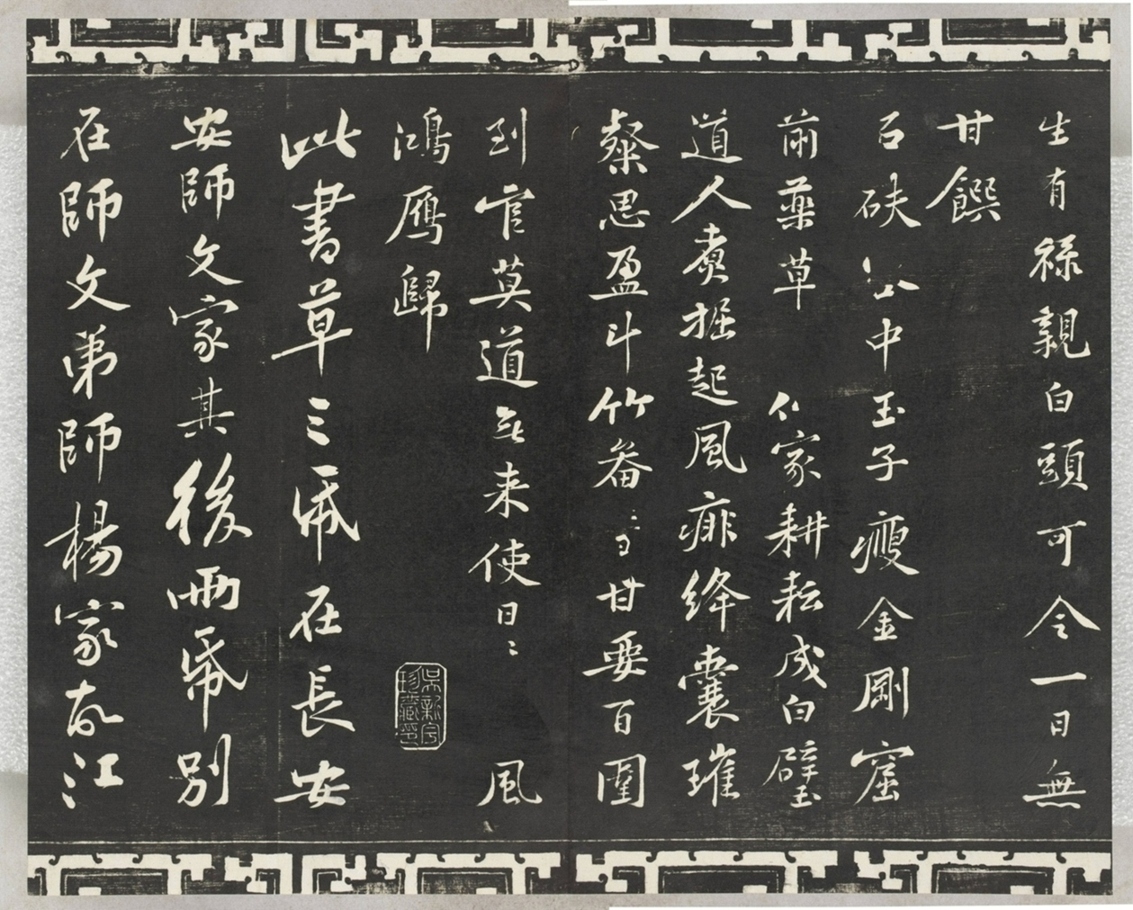 生有祿親白頭可令一日無
甘饌
石砆谷中玉子瘦金剛窟
前藥草 家耕耘成白璧
道人煑掘起風痱絳囊璀
粲思盈斗竹畚甘要百圍
到官莫道無来使日〻 風
鴻鴈歸
此書草三帋在長安
安師文家其後兩帋別
在師文弟師楊家故江
吳新宇珍藏印